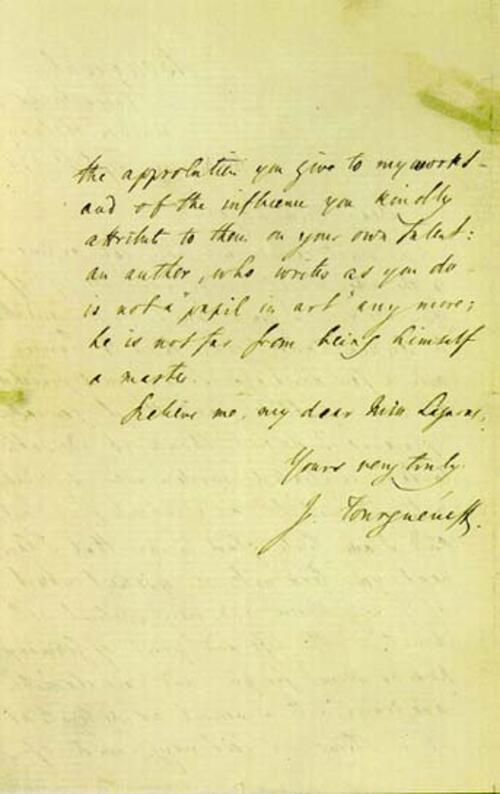 the approbation you give to my works -
and of the influence you kindly
attribut to them on your own talent:
an author, who writes as you do -
is not a "pupil in art" any more;
he is not far from being himself
a master.
Believe me, my dear Miss Lazarus,
Yours very truly.
J. Tourguéneff.